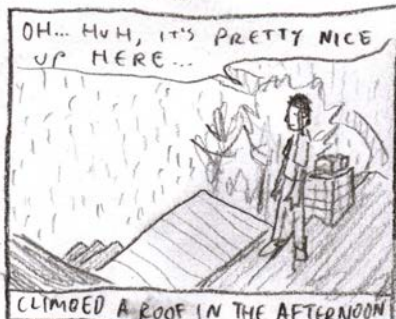 OH... HUH, IT'S PRETTY NICE
UP HERE...
CLIMBED A ROOF IN THE AFTERNOON